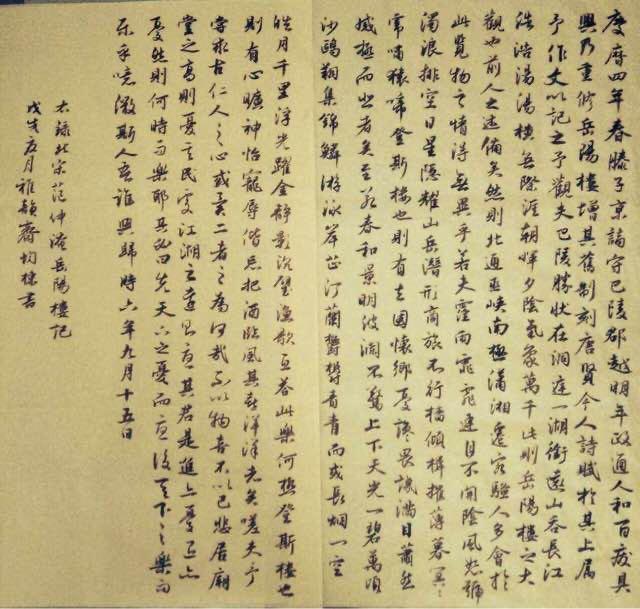 慶曆四年春滕子京謫守巴陵郡越明年政通人和百廢具
興乃重修岳陽樓增其舊制刻唐賢今人詩賦於其上屬
予作文以記之予觀夫巴陵勝狀在洞庭一湖銜遠山吞長江
浩浩湯湯橫無際涯朝暉夕陰氣象萬千此則岳陽樓之大
觀也前人之述備矣然則北通巫峽南極瀟湘遷客騷人多會於
此覽物之情得無異乎若夫霪雨霏霏連月不開陰風怒號
濁浪排空日星隱耀山岳潛形商旅不行檣傾楫摧薄暮冥冥
常嘯猿啼登斯樓也則有去國懷鄉憂讒畏譏滿目蕭然
感極而悲者矣至若春和景明波瀾不驚上下天光一碧萬頃
沙鷗翔集錦鱗游泳岸芷汀蘭鬱鬱青青而或長烟一空
皓月千里浮光躍金靜影沉璧漁歌互答此樂何極登斯樓也
則有心曠神怡寵辱偕忘把酒臨風其喜洋洋者矣嗟夫予
嘗求古仁人之心或異二者之為何哉不以物喜不以己悲居廟
堂之高則憂其民處江湖之遠則憂其君是進亦憂退亦
憂然則何時而樂耶其必曰先天下之憂而憂後天下之樂而
樂乎噫微斯人吾誰與歸時六年九月十五日
右錄北宋范仲淹岳陽樓記
戊戌夏月雅韻齋均棟書